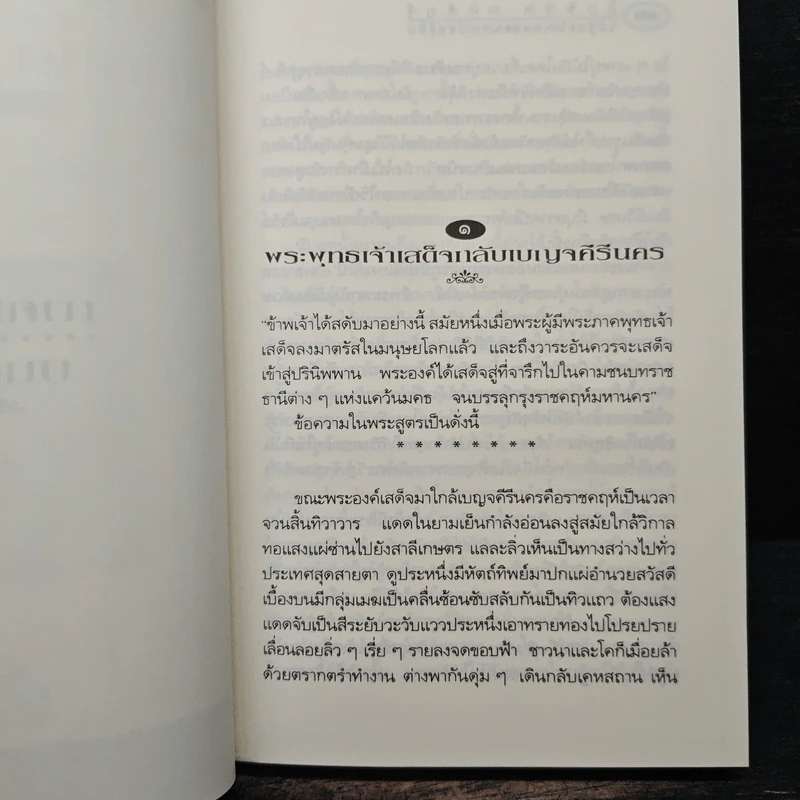 ๑
พระพุทธเจ้าเสด็จกลับเบญจคีรีนคร
"ข้าพเจ้าได้สดับมาอย่างนี้ สมัยหนึ่งเมื่อพระผู้มีพระภาคพุทธเจ้า
เสด็จลงมาตรัสในมนุษยโลกแล้ว และถึงวาระอันควรจะเสด็จ
เข้าสู่ปรินิพพาน พระองค์ได้เสด็จสู่ที่จาริกไปในคามชนบทราช
ธานีต่าง ๆ แห่งแคว้นมคธ จนบรรลุกรุงราชคฤห์มหานคร"
ข้อความในพระสูตรเป็นดั่งนี้
* * * * * * * *
ขณะพระองค์เสด็จมาใกล้เบญจคีรีนครคือราชคฤห์เป็นเวลา
จวนสิ้นทิวาวาร แดดในยามเย็นกำลังอ่อนลงสู่สมัยใกล้วิกาล
ทอแสงแผ่ซ่านไปยังสาลีเกษตร แลละลิ่วเห็นเป็นทางสว่างไปทั่ว
ประเทศสุดสายตา ดูประหนึ่งมีหัตถ์ทิพย์มาปกแผ่อำนวยสวัสดี
เบื้องบนมีกลุ่มเมฆเป็นคลื่นซ้อนซับสลับกันเป็นทิวแถว ต้องแสง
แดดจับเป็นสีระยับวะวับแววประหนึ่งเอาทรายทองไปโปรยปราย
เลื่อนลอยลิ่ว ๆ เรี่ย ๆ รายลงจดขอบฟ้า ชาวนาและโคก็เมื่อยล้า
ด้วยตรากตรำทำงาน ต่างพากันดุ่ม ๆ เดินกลับเคหสถาน เห็น